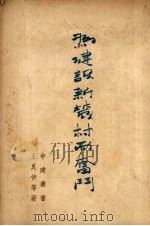 為建設新農村而奮鬥
中建叢書
王艮仲等著